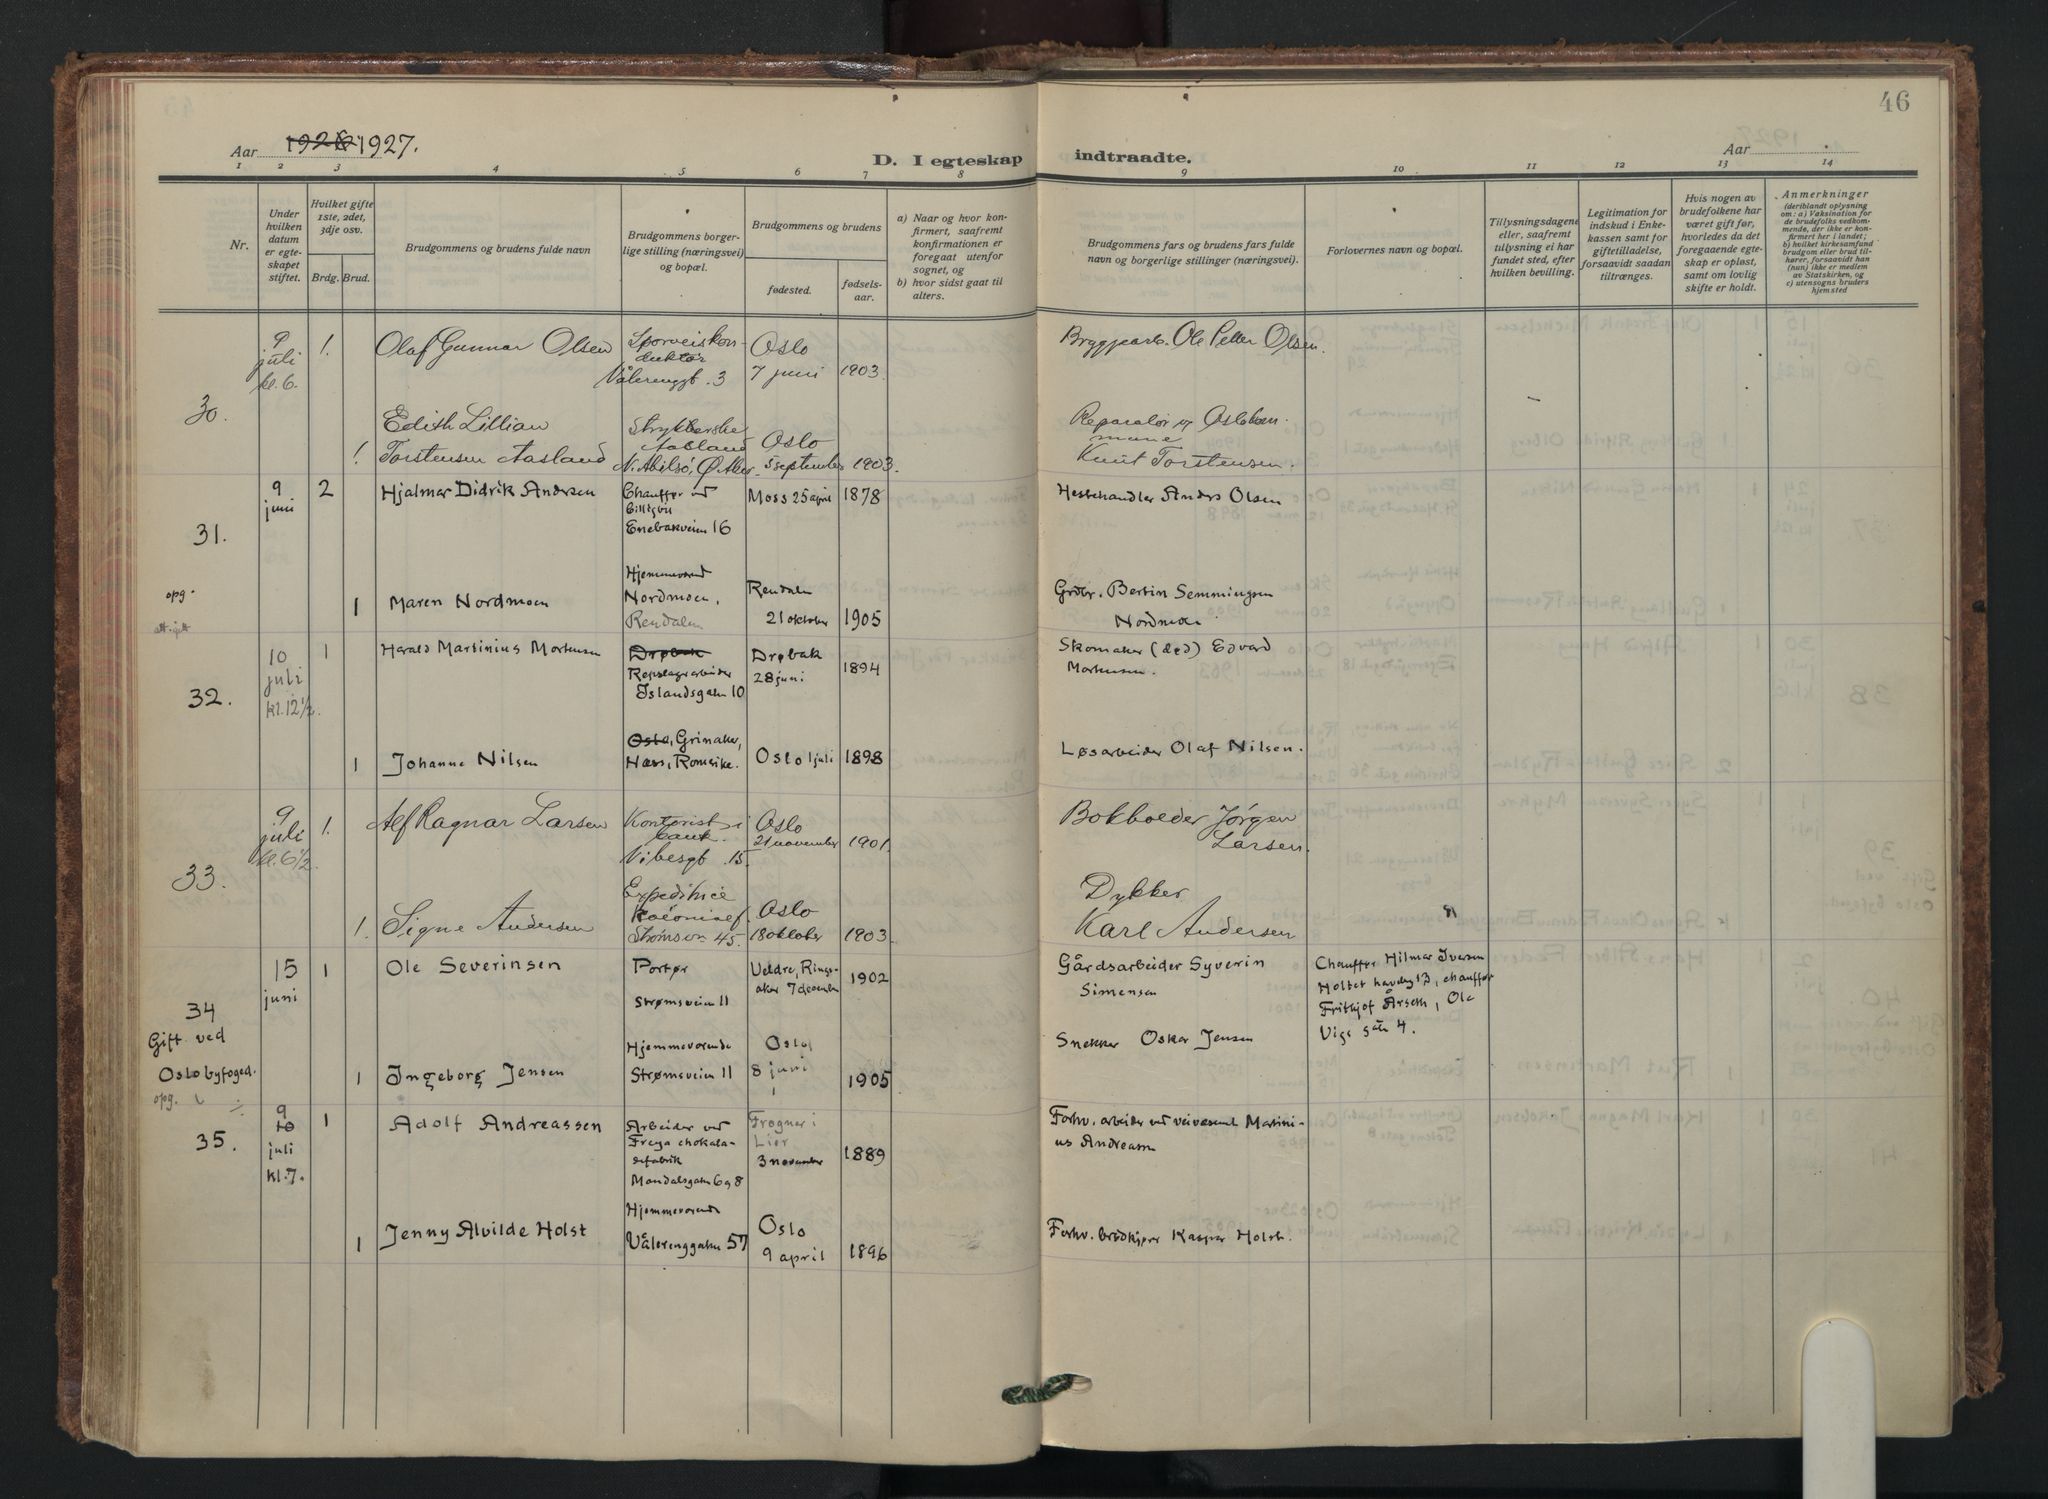 46
Aar 1926 1927.
D. I egteskap indtraadte.
Aar
1 2 3 4 5 6 7 8 9 10 11 12 13 14
Nr.
Under hvilken datum er egteskapet stiftet.
Hvilket gifte 1ste, 2det, 3dje osv.
Brdg. Brud.
Brudgommens og brudens fulde navn
Brudgommens borgerlige stilling (næringsvei) og bopæl.
Brudgommens og brudens
fødested.
fødselsaar.
a) Naar og hvor konfirmert, saafremt konfirmationen er foregaat utenfor sognet, og
b) hvor sidst gaat til alters.
Brudgommens fars og brudens fars fulde navn og borgerlige stillinger (næringsvei).
Forlovernes navn og bopæl.
Tillysningsdagene eller, saafremt tillysning ei har fundet sted, efter hvilken bevilling.
Legitimation for indskud i Enkekassen samt for giftetilladelse, forsaavidt saadan tiltrænges.
Hvis nogen av brudefolkene har været gift før, hvorledes da det foregaaende egteskap er opløst, samt om lovlig skifte er holdt.
Anmerkninger
(deriblandt oplysning om: a) Vaksination for de brudefolks vedkommende, der ikke er konfirmert her i landet; b) hvilket kirkesamfund brudgom eller brud tilhører, forsaavidt han (hun) ikke er medlem av Statskirken, og c) utensogns bruders hjemsted
30.
9 juli kl. 6.
1.
Olaf Gunnar Olsen
Sporveiskonduktør
Vålerenggt. 3
Oslo
7 juni
1903.
Bryggearb. Ole Petter Olsen.
1.
Edith Lillian
Torstensen Aasland
Strykerske
Aasland
N. Abilsø, Ø. Aker
Oslo
5 september
1903.
Knut Torstensen.
31.
9 juni
2
Hjalmar Didrik Andersen
Chauffør ved
Enebakveien 16
Moss 25 april
1878
Hestehandler Anders Olsen
opg.
1
Maren Nordmoen
Hjemmeværend
Nordmoen,
Rendalen
Rendalen
21 oktober
1905
Grdbr. Bertin Semmingsen
Nordmoen
32.
10 juli kl. 12 ½.
1
Harald Martinius Mortensen
Drøbak
Repslagerarbeider
Islandsgaten 10
Drøbak
28 juni
1894
Skomaker (død) Edvard
Mortensen.
1
Johanne Nilsen
Oslo, Grinaker,
Næs, Romerike.
Oslo 1 juli
1898
Løsarbeider Olaf Nilsen.
33.
9 juli kl. 6 ½
1.
Alf Ragnar Larsen
Kontorist i
bank.
Vibesgt. 15.
Oslo
21 november
1901.
Bokholder Jørgen
Larsen.
1.
Signe Andersen
Expeditrice
Strømsv. 45.
Oslo
18 oktober
1903.
Dykker
Karl Andersen
34
Gift ved
Oslo byfoged.
opg.
15 juni
1
Ole Severinsen
Portør
Strømsveien 11
Veldre, Ringsaker 7 december
1902
Gårdsarbeider Syverin
Simensen
Chauffør Hilmar Iversen
Holtet haveby 13, chauffør
Frithjof Årseth, Ole
Vigs gate 4.
1
Ingeborg Jensen
Hjemmeværende
Strømsveien 11
Oslo
8 juni
1905
Snekker Oskar Jensen
35.
10
9
juli
kl. 7.
1
Adolf Andreassen
Arbeider ved
Freya chokoladefabrik
Mandalsgaten 6 og 8
Frogner i
Lier
3 november
1889
Forhv. arbeider ved veivæsenet Martinius Andreassen
1
Jenny Alvilde Holst
Hjemmeværende
Vålerenggaten 57
Oslo
9 april
1896
Forhv. brødkjører Kasper Holst.